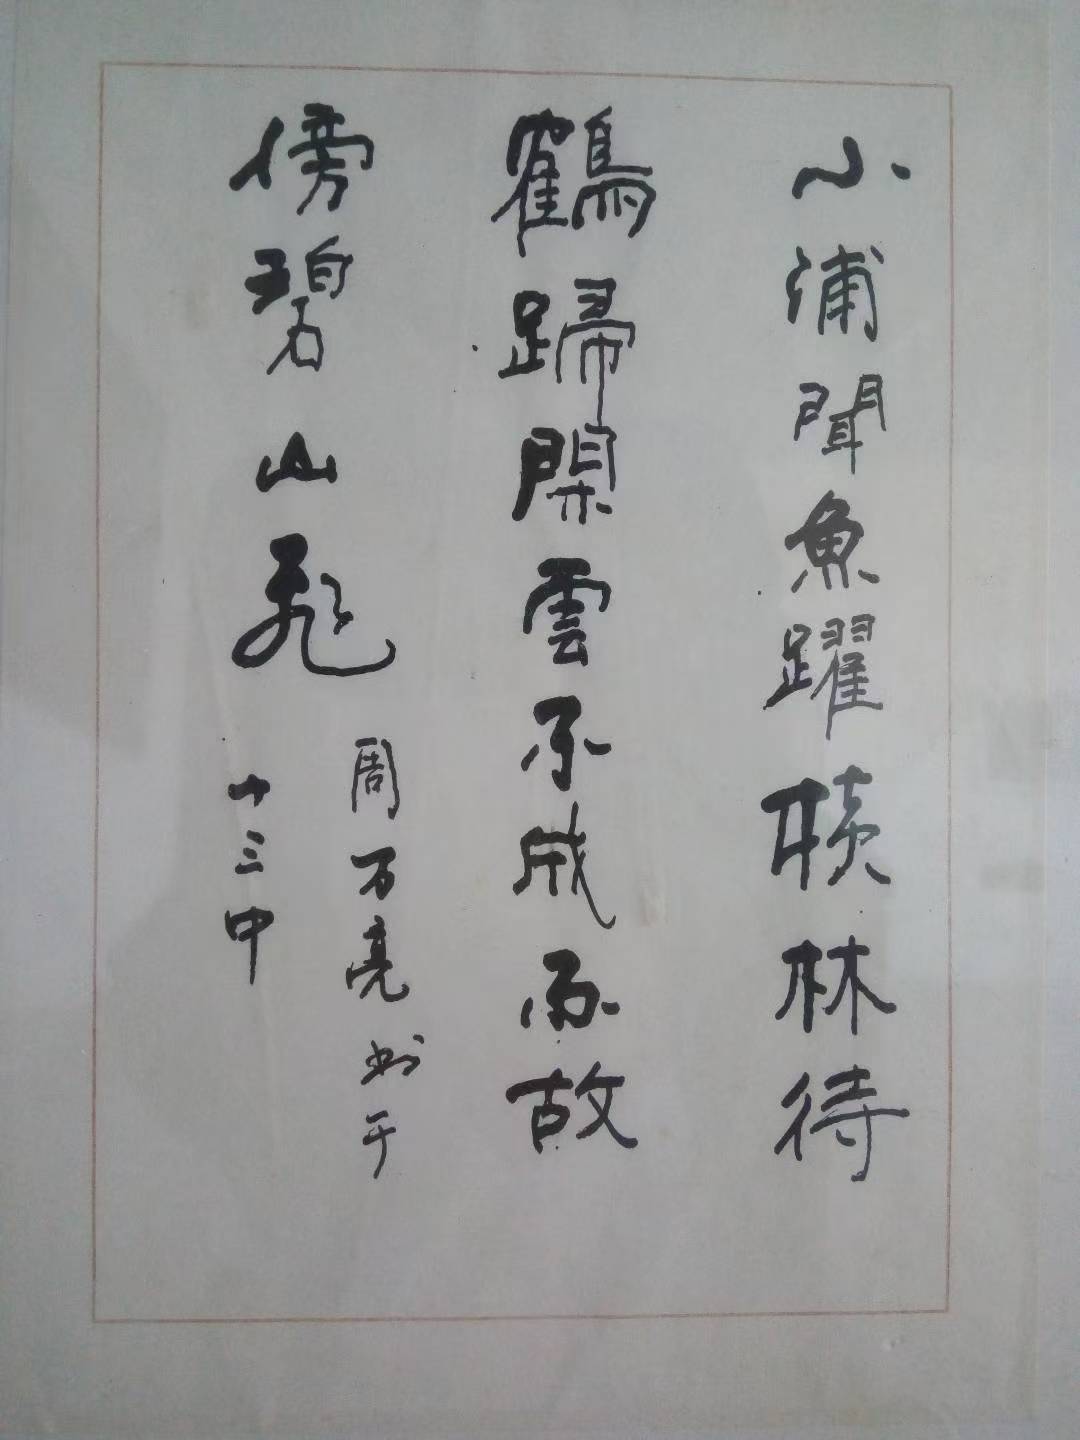 小浦聞魚躍橫林待
鶴歸閑雲不成雨故
傍碧山飛
周万亮书于
十三中